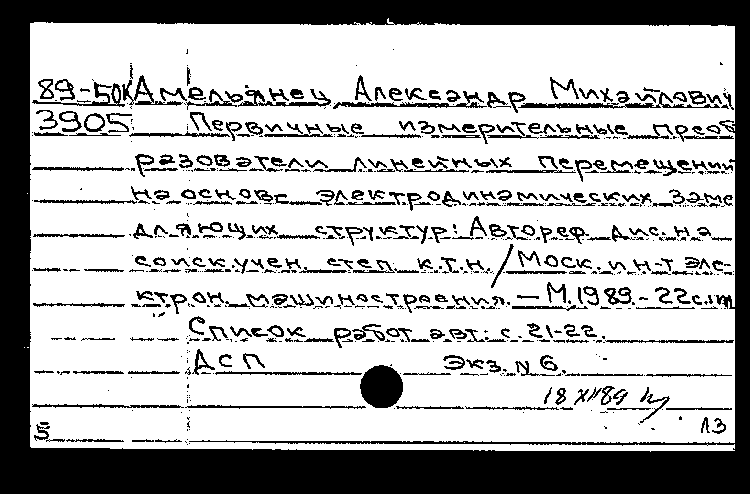 89-50К Амельянец, Александр Михайлович
3905 Первичные измерительные преоб
разователи линейных перемещений
на основе электродинамических заме
дляющих структур: Автореф. дис. на
соиск. учен. степ. к.т.н. / Моск. ин-т элек-
трон. машиностроения. — М. 1989. - 22 с.
Список работ авт.: с. 21-22.
ДСП Экз. N 6.
18 XII 89
5 ЛЗ